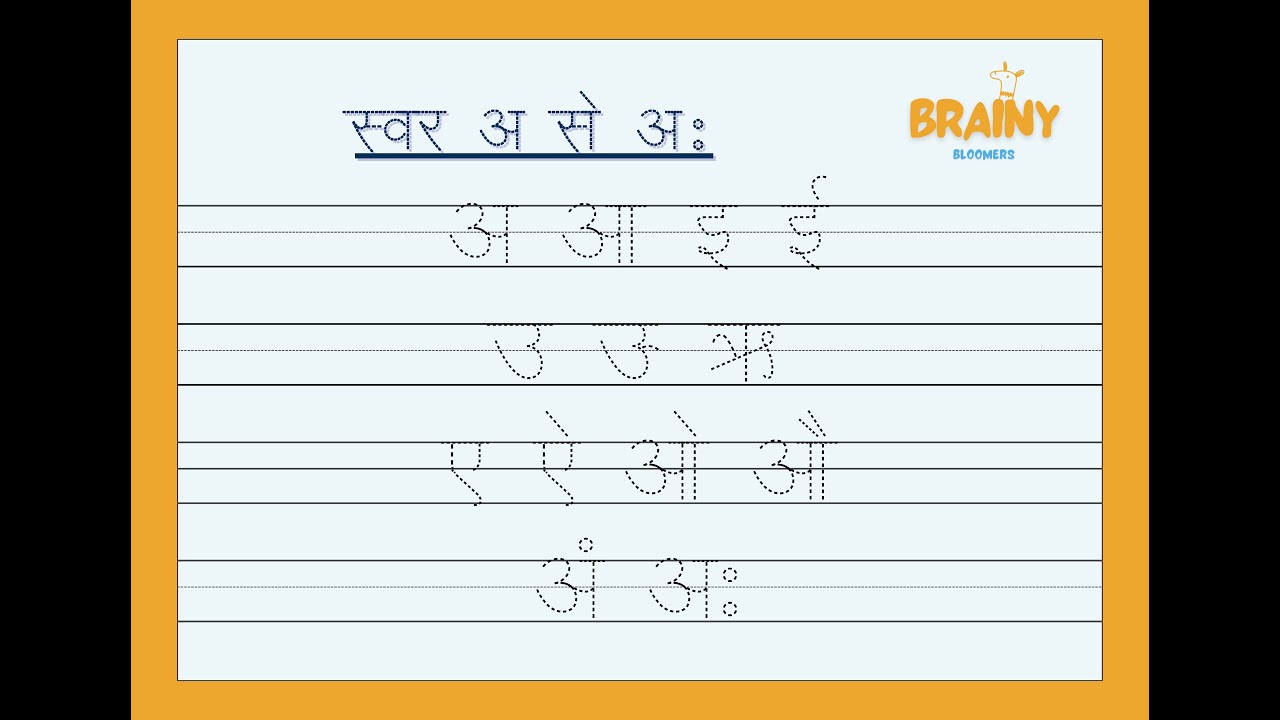 स्वर अ से अः
BRAINY
BLOOMERS
अ आ इ ई
उ ऊ ऋ
ए ऐ ओ औ
अं अः